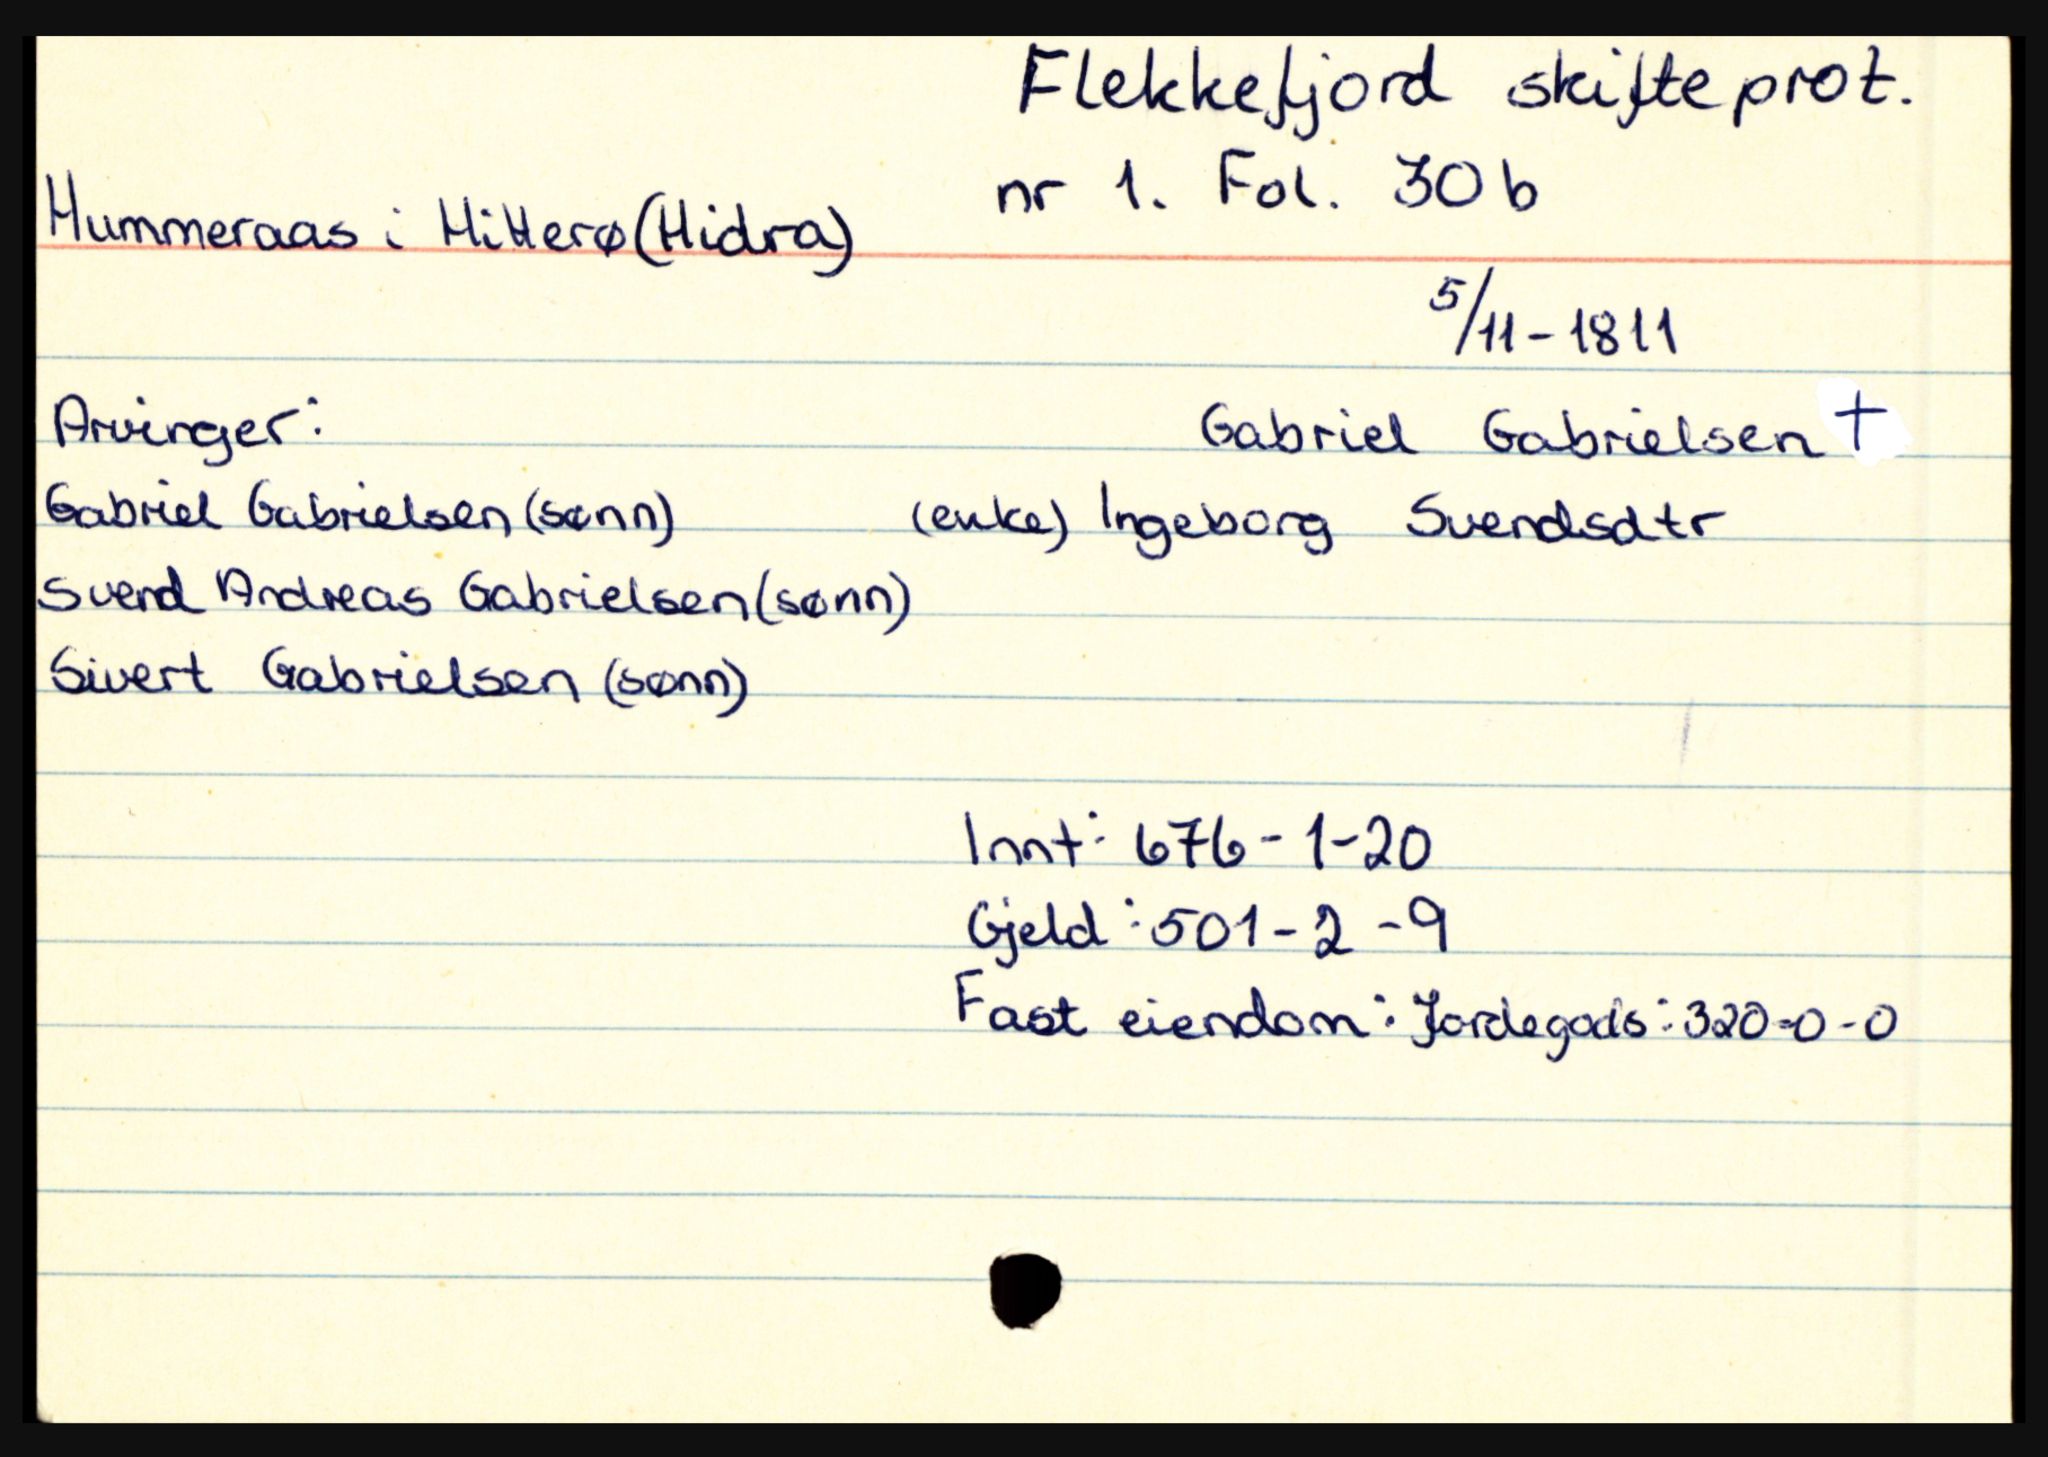 Flekkefjord skifteprot.
nr 1. Fol. 30 b
Hummeraas i Hitterø (Hidra)
5/11-1811
Arvinger:
Gabriel Gabrielsen †
Gabriel Gabrielsen (sønn)
(enke) Ingeborg Svendsdtr
Svend Andreas Gabrielsen (sønn)
Sivert Gabrielsen (sønn)
Innt: 676-1-20
Gjeld: 501-2-9
Fast eiendom: Jordegods: 320-0-0